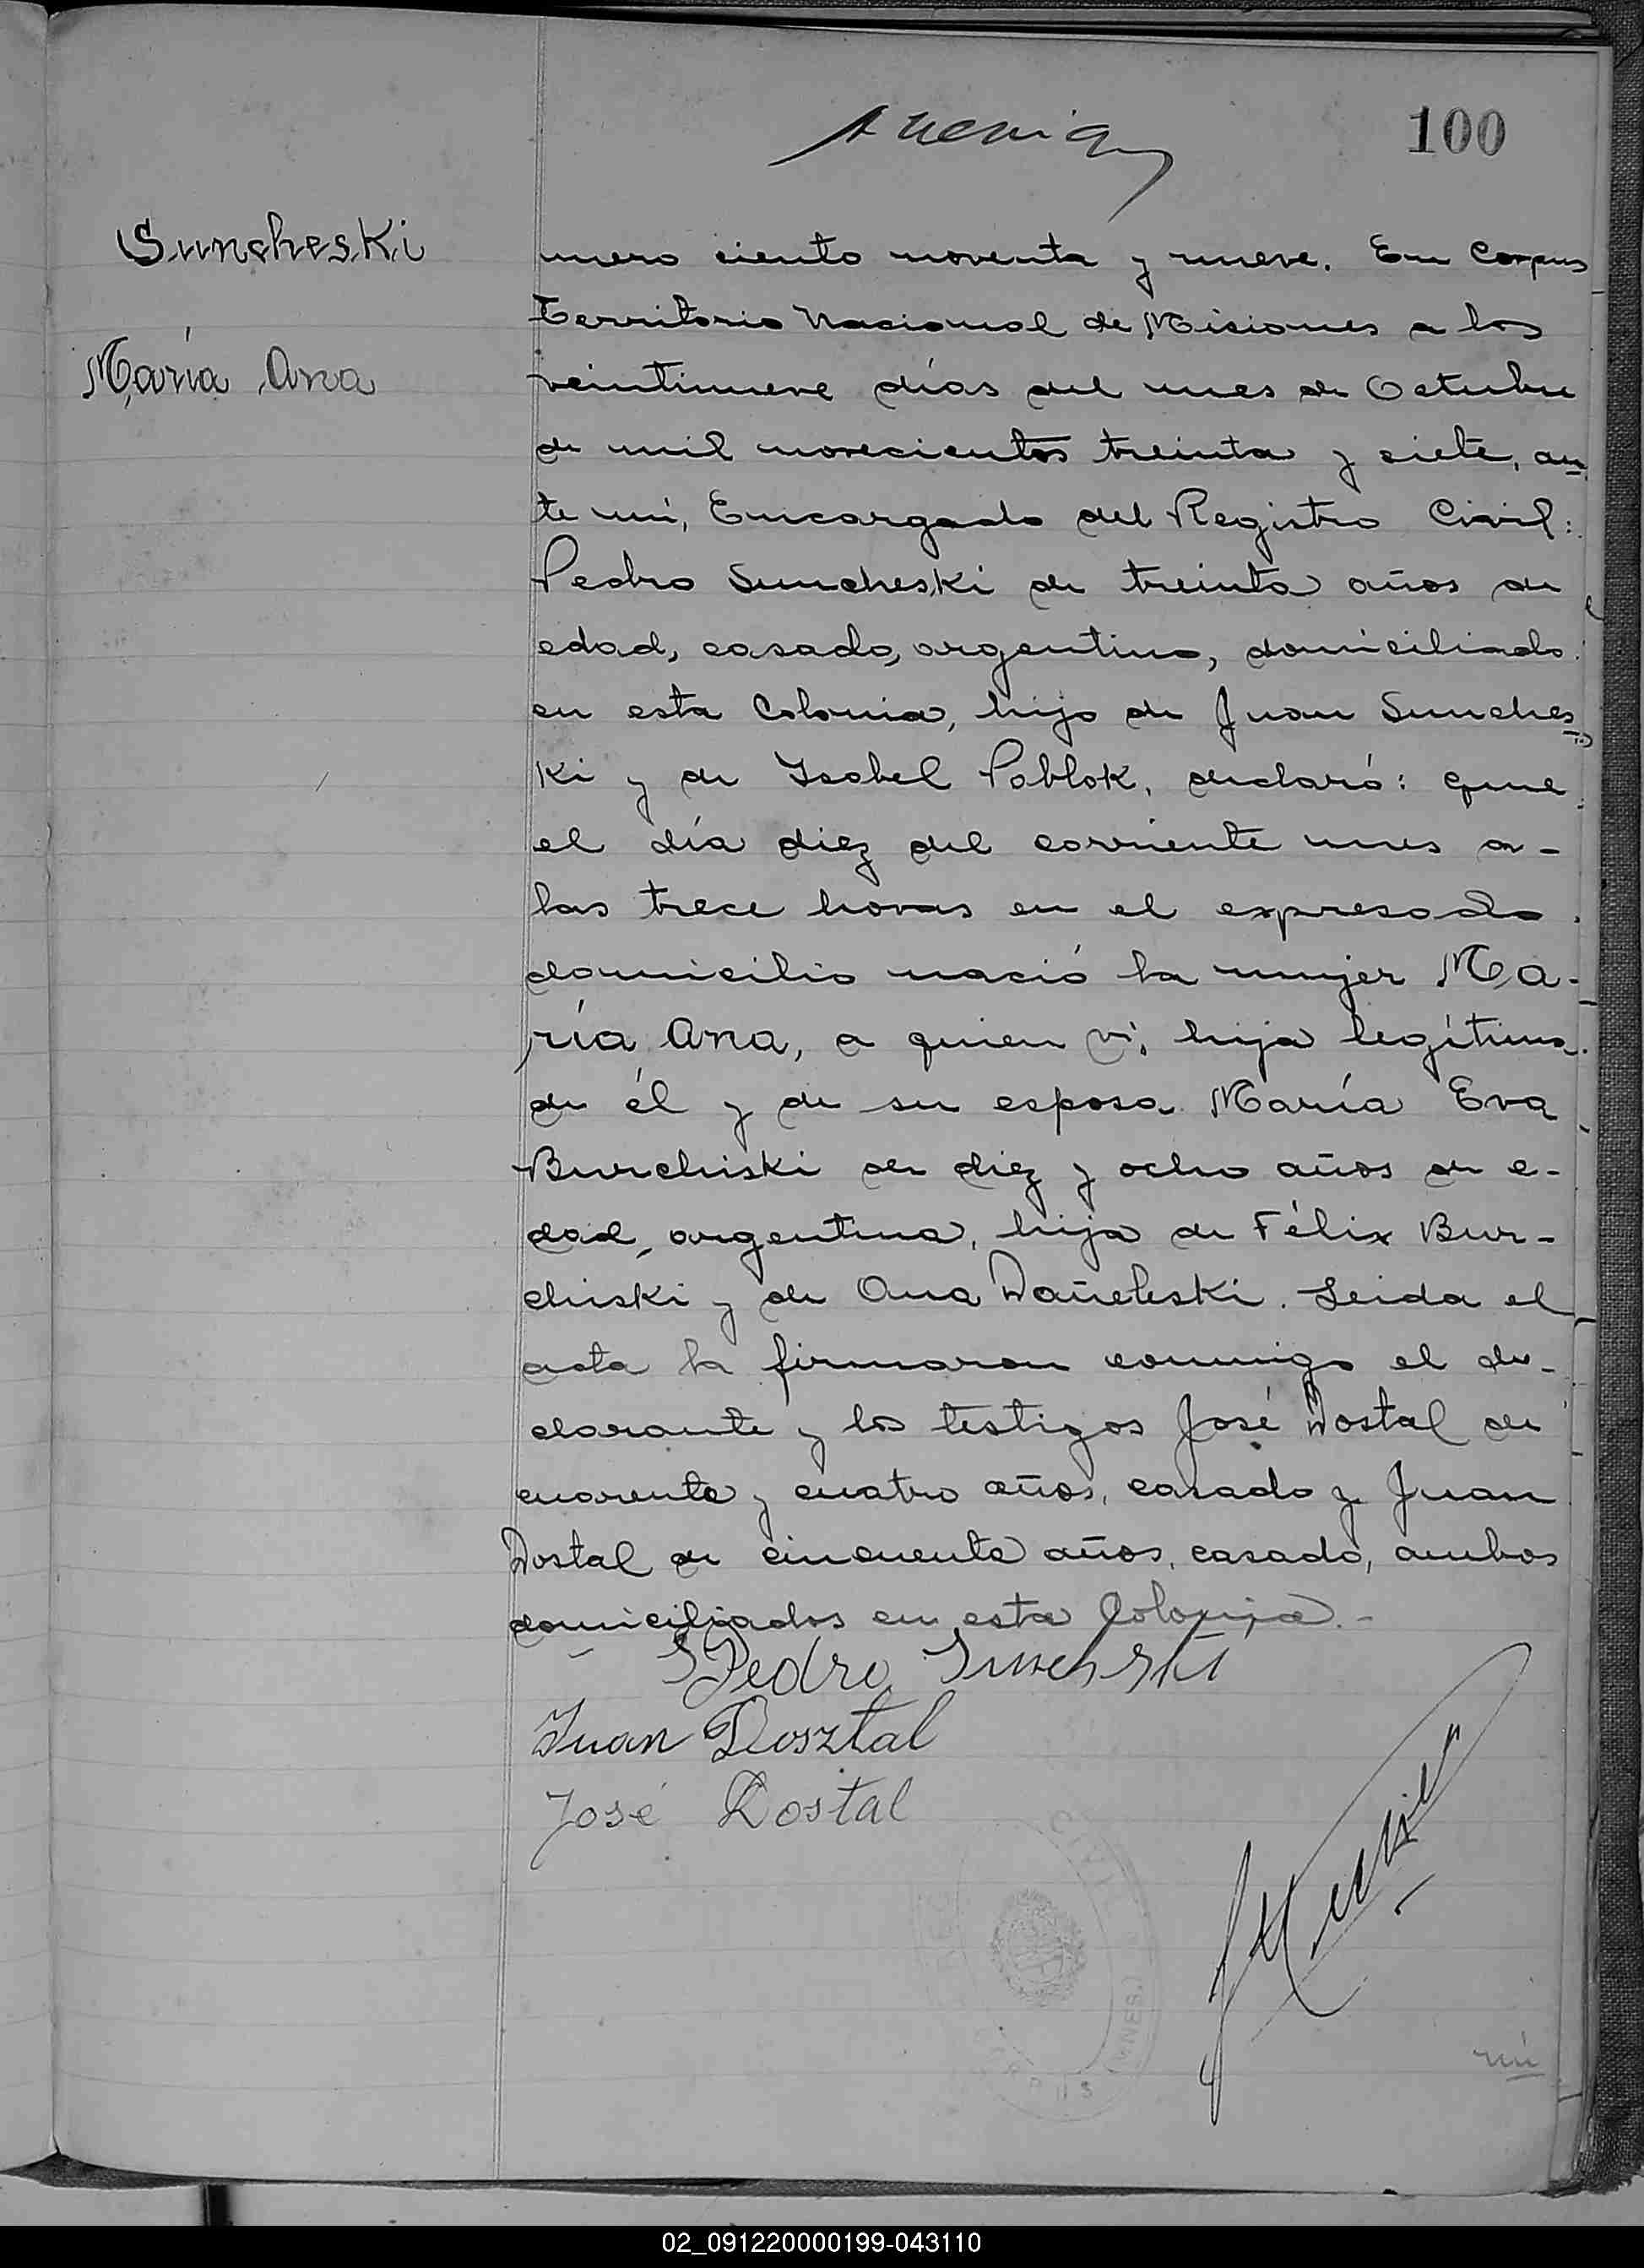 100
Suncheski
María Ana
mero ciento noventa y nueve. En Corpus
Territorio Nacional de Misiones a los
veintinueve días del mes de Octubre
de mil novecientos treinta y siete, an
te mí, Encargado del Registro Civil:
Pedro Suncheski de treinta años de
edad, casado, argentino, domiciliado
en esta Colonia, hijo de Juan Sunches
ki y de Isabel Pablok, declaró: que
el día diez del corriente mes a-
las trece horas en el expresado
domicilio nació la mujer Ma-
ría Ana, a quien ví, hija legítima
de él y de su esposa María Eva
Burchiski de diez y ocho años de e-
dad, argentina, hija de Félix Bur-
chiski y de Ana Dañeleski. Leida el
acta la firmaron conmigo el de-
clarante y los testigos José Dostal de
cuarenta y cuatro años, casado y Juan
Dostal de cincuenta años, casado, ambos
domiciliados en esta Colonia.-
Pedro
Juan Dosztal
José Dostal
CIVIL
CORPUS (MNES.)
02_091220000199-043110